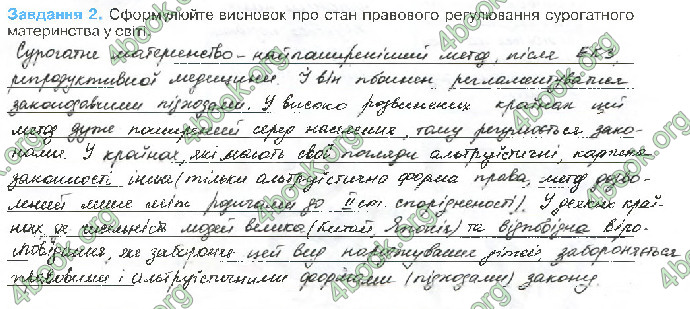 Завдання 2. Сформулюйте висновок про стан правового регулювання сурогатного
материнства у світі.
Сурогатне материнство – найпоширеніший метод, після ЕКЗ,
репродуктивної медицини. І він повинен регламентуватися
законодавчими підходами. У високо розвинених країнах цей
метод дуже поширений серед населення, тому регулюється зако-
нами. У країнах, які мають свої погляди альтруїстичні,
законності інші (тільки альтруїстична форма права, метод дозво-
лений лише між родичами до II ст. спорідненості). У деяких краї-
нах, де чисельність людей велика (Китай, Японія) та відповідна віро-
сповідання, яке забороняє цей вид народжування дітей, забороняється
правовими і альтруїстичними формами (підходами) закону.